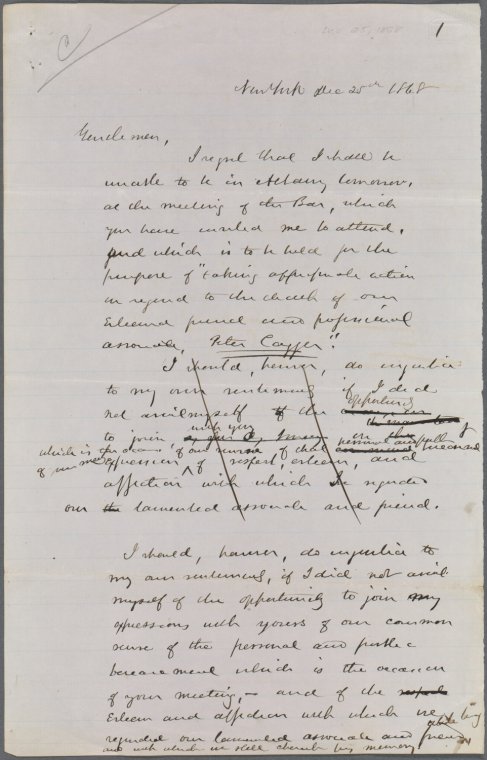 1
New York Dec 25th 1868
Gentlemen,
I regret that I shall be
unable to be in Albany tomorrow,
at the meeting of the Bar, which
you have invited me to attend,
and which is to be held for the
purpose of "taking appropriate action
in regard to the death of our
Esteemed friend and professional
associate, Peter Cagger".
I should, however, do injustice
to my own sentiments if I did
not avail myself of the opportunity
to join with you
which is the occasion of our sense of that personal and public bereavement
of your meeting expression of respect, esteem, and
affection with which he regarded
our lamented associate and friend.
I should, however, do injustice to
my own sentiments, if I did not avail
myself of the opportunity to join my
expressions with yours of our common
sense of the personal and public
bereavement which is the occasion
of your meeting, — and of the respect
Esteem and affection with which we
regarded our lamented associate and friend
and with which we still cherish his memory